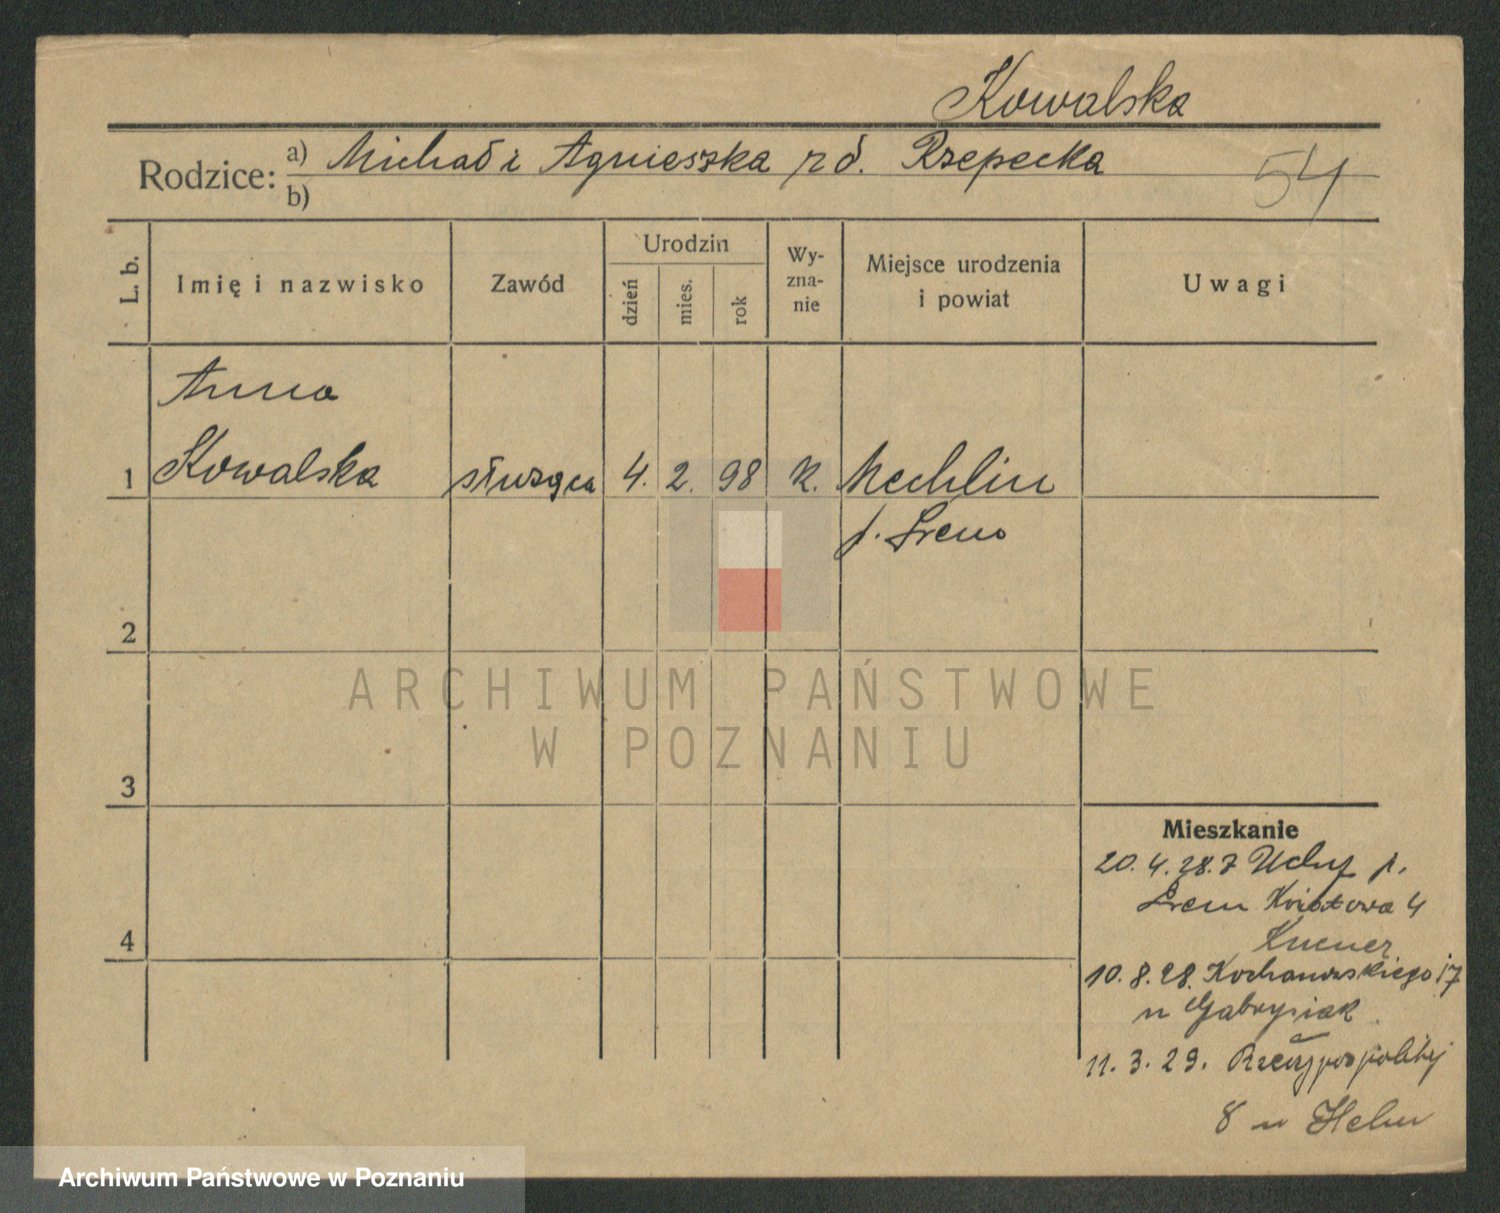 Kowalska
Rodzice: a) Michał i Agnieszka rd. Rzepecka
b)
54
L. b.
Imię i nazwisko
Zawód
Urodzin
dzień
mies.
rok
Wy-
zna-
nie
Miejsce urodzenia
i powiat
Uwagi
Anna
1 Kowalska służąca 4. 2. 98 k. Mechlin
p. Śrem
2
3
4
ARCHIWUM PAŃSTWOWE
W POZNANIU
Mieszkanie
20. 4. 28. z p.
Śrem Kwiatowa 4
10. 8. 28. Kochanowskiego 17
u Gabrysiak
11. 3. 29. Rzeczypospolitej
8 u
Archiwum Państwowe w Poznaniu